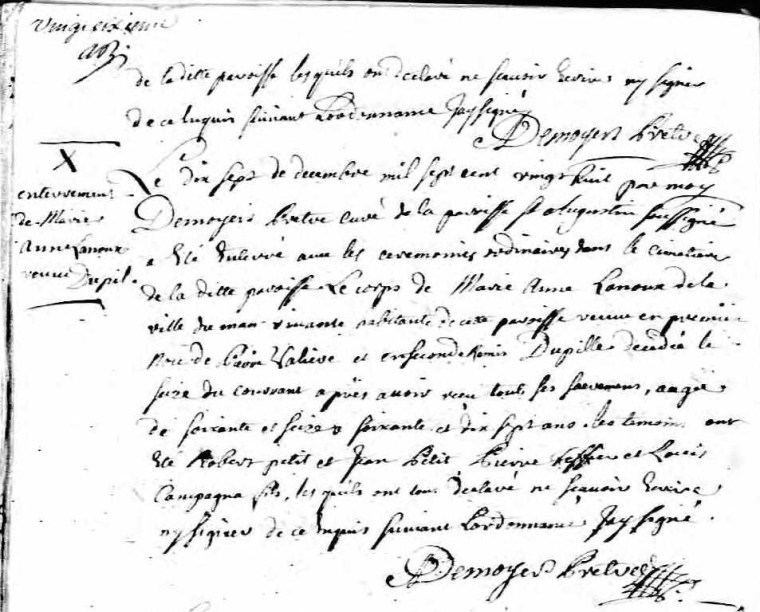 vingt sixieme
de laditte paroisse lesquels ont declaré ne scavoir ecrire ny signer
de ce enquis suivant Lordonnance Jay signé
Demoyers Pretre
X
enterrement
de Marie
Anne Lanoux
veuve Dupil.
Le dix sept de decembre mil sept cent vingt huit par moy
Demoyers Pretre curé de la paroisse st Augustin soussigné
a eté enterré avec les ceremonies ordinaires dans le cimetiere
de la ditte paroisse Le corps de Marie Anne Lanoux de la
ville du man vivante habitante de cette paroisse veuve en premiere
noce de Valiere et en seconde Remis Dupille decedée le
seize du courrant apres avoir recu touts ses sacremens, augée
de soixante et seize a soixante et dix sept ans. les temoins ont
eté Robert petit et Jean Petit Pierre et Louis
Campagna fils, lesquels ont tous declaré ne scavoir ecrire
ny signer de ce enquis suivant Lordonnance Jay signé.
Demoyers Pretre